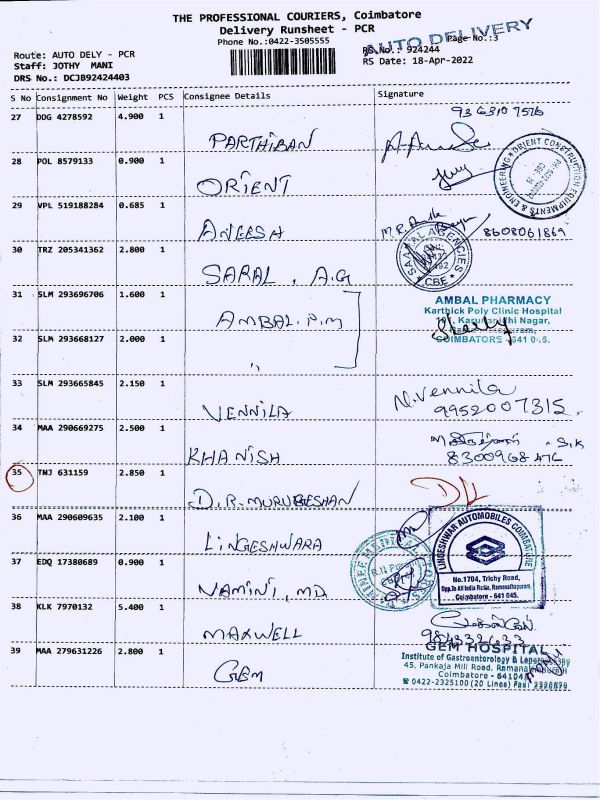 THE PROFESSIONAL COURIERS, Coimbatore
Delivery Runsheet - PCR
Phone No.:0422-3505555
AUTO DELIVERY
Page No.:3
Route: AUTO DELY - PCR
RS No.: 924244
Staff: JOTHY MANI
RS Date: 18-Apr-2022
DRS No.: DCJB92424403
S No Consignment No Weight PCS Consignee Details Signature
27 DDG 4278592 4.900 1
PARTHIBAN
28 POL 8579133 0.900 1
ORIENT
ORIENT CONSTRUCTION EQUIPMENTS & ENGINEERING
29 VPL 519188284 0.685 1
ANEESA
8608061869
30 TRZ 205341362 2.800 1
SARAL . A.G
SARAL AGENCIES
CBE
31 SLM 293696706 1.600 1
AMBAL. P.M
AMBAL PHARMACY
Karthick Poly Clinic Hospital
32 SLM 293668127 2.000 1
"
COIMBATORE - 641 045.
33 SLM 293665845 2.150 1
VENNILA
N. Vennila
9952007315.
34 MAA 290669275 2.500 1
KHANISH
35 TNJ 631159 2.850 1
D.R. MURUGESHAN
36 MAA 290609635 2.100 1
LINGESHWARA
LINGESHWAR AUTOMOBILES COIMBATORE
No.1704, Trichy Road,
Opp.To All India Radio, Ramanathapuram,
Coimbatore - 641 045.
37 EDQ 17380689 0.900 1
NAMINI, MD
38 KLK 7970132 5.400 1
MAXWELL
39 MAA 279631226 2.800 1
GEM
GEM HOSPITAL
Institute of Gastroenterology &
45, Pankaja Mill Road,
Coimbatore -
0422-2325100 (20 Lines)